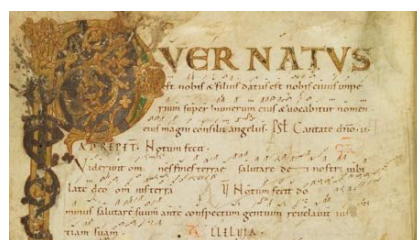 PUER NATUS
est nobis & filius datus est nobis cuius impe
rium super humerum eius & vocabitur nomen
eius magni consilii angelus. Ps̄ Cantate dño.
AD REPET. Notum fecit.
Viderunt om nes fines terrae salutare de i nostri iubi
late deo om nis terra V Notum fecit do
minus salutare suum ante conspectum gentium revelavit ius
titiam suam. ALLELUIA.